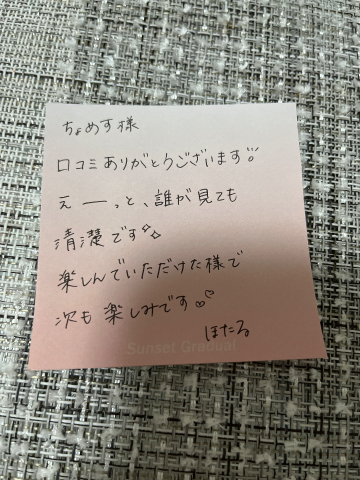 ちょめす様
口コミありがとうございます
え ー っと、誰が見ても
清楚です
楽しんでいただけた様で
次も楽しみです
ほたる
Sunset Gradual